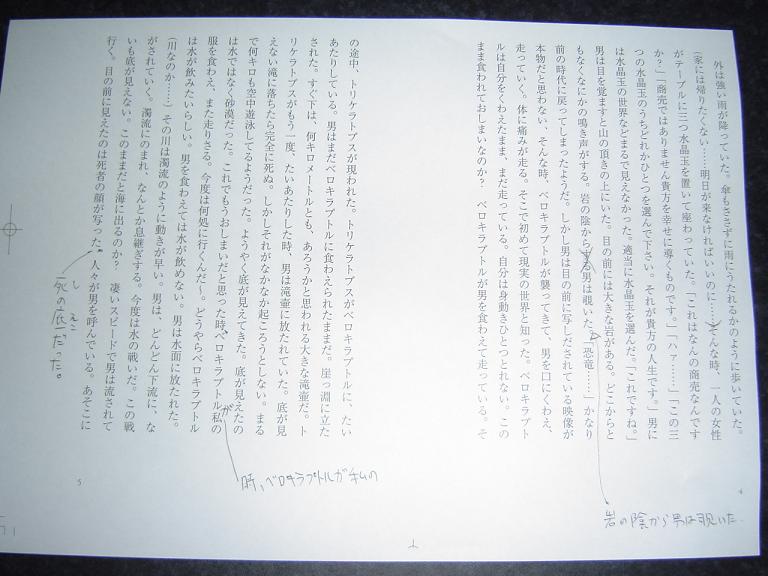 外は強い雨が降っていた。傘もささずに雨にうたれるかのように歩いていた。
(家には帰りたくない……明日が来なければいいのに……)そんな時、一人の女性
がテーブルに三つ水晶玉を置いて座わっていた。「これはなんの商売なんです
か?」「商売ではありません貴方を幸せに導くものです。」「ハァ……」「この三
つの水晶玉のうちどれかひとつを選んで下さい。それが貴方の人生です。」男に
は水晶玉の世界などまるで見えなかった。適当に水晶玉を選んだ。「これですね。」
男は目を覚ますと山の頂きの上にいた。目の前には大きな岩がある。どこからと
もなくなにかの鳴き声がする。岩の陰から男は覗いた。「恐竜……」かなり
前の時代に戻ってしまったようだ。しかし男は目の前に写しだされている映像が
本物だと思わない、そんな時、ベロキラプトルが襲ってきて、男を口にくわえ、
走っていく。体に痛みが走る。そこで初めて現実の世界と知った。ベロキラプト
ルは自分をくわえたまま、まだ走っている。自分は身動きひとつとれない。この
まま食われておしまいなのか? ベロキラプトルが男を食わえて走っている。そ
岩の陰から男は覗いた
4
の途中、トリケラトプスが現われた。トリケラトプスがベロキラプトルに、たい
あたりしている。男はまだベロキラプトルに食わえられたままだ。崖っ淵に立た
された。すぐ下は、何キロメートルとも、あろうかと思われる大きな滝壺だ。ト
リケラトプスがもう一度、たいあたりした時、男は滝壺に放たれていた。底が見
えない滝に落ちたら完全に死ぬ。しかしそれがなかなか起ころうとしない。まる
で何キロも空中遊泳してるようだった。ようやく底が見えてきた。底が見えたの
は水ではなく砂漠だった。これでもうおしまいだと思った時ベロキラプトル私の
服を食わえ、また走りさる。今度は何処に行くんだ～。どうやらベロキラプトル
は水が飲みたいらしい。男を食わえては水が飲めない。男は水面に放たれた。
(川なのか……)その川は濁流のように動きが早い。男は、どんどん下流に、な
がされていく。濁流にのまれ、なんとか息継ぎする。今度は水の戦いだ。この戦
いも底が見えない。このままだと海に出るのか? 凄いスピードで男は流されて
行く。目の前に見えたのは死者の顔が写った。人々が男を呼んでいる。あそこに
が
時、ベロキラプトルが私の
死の底だった。
5